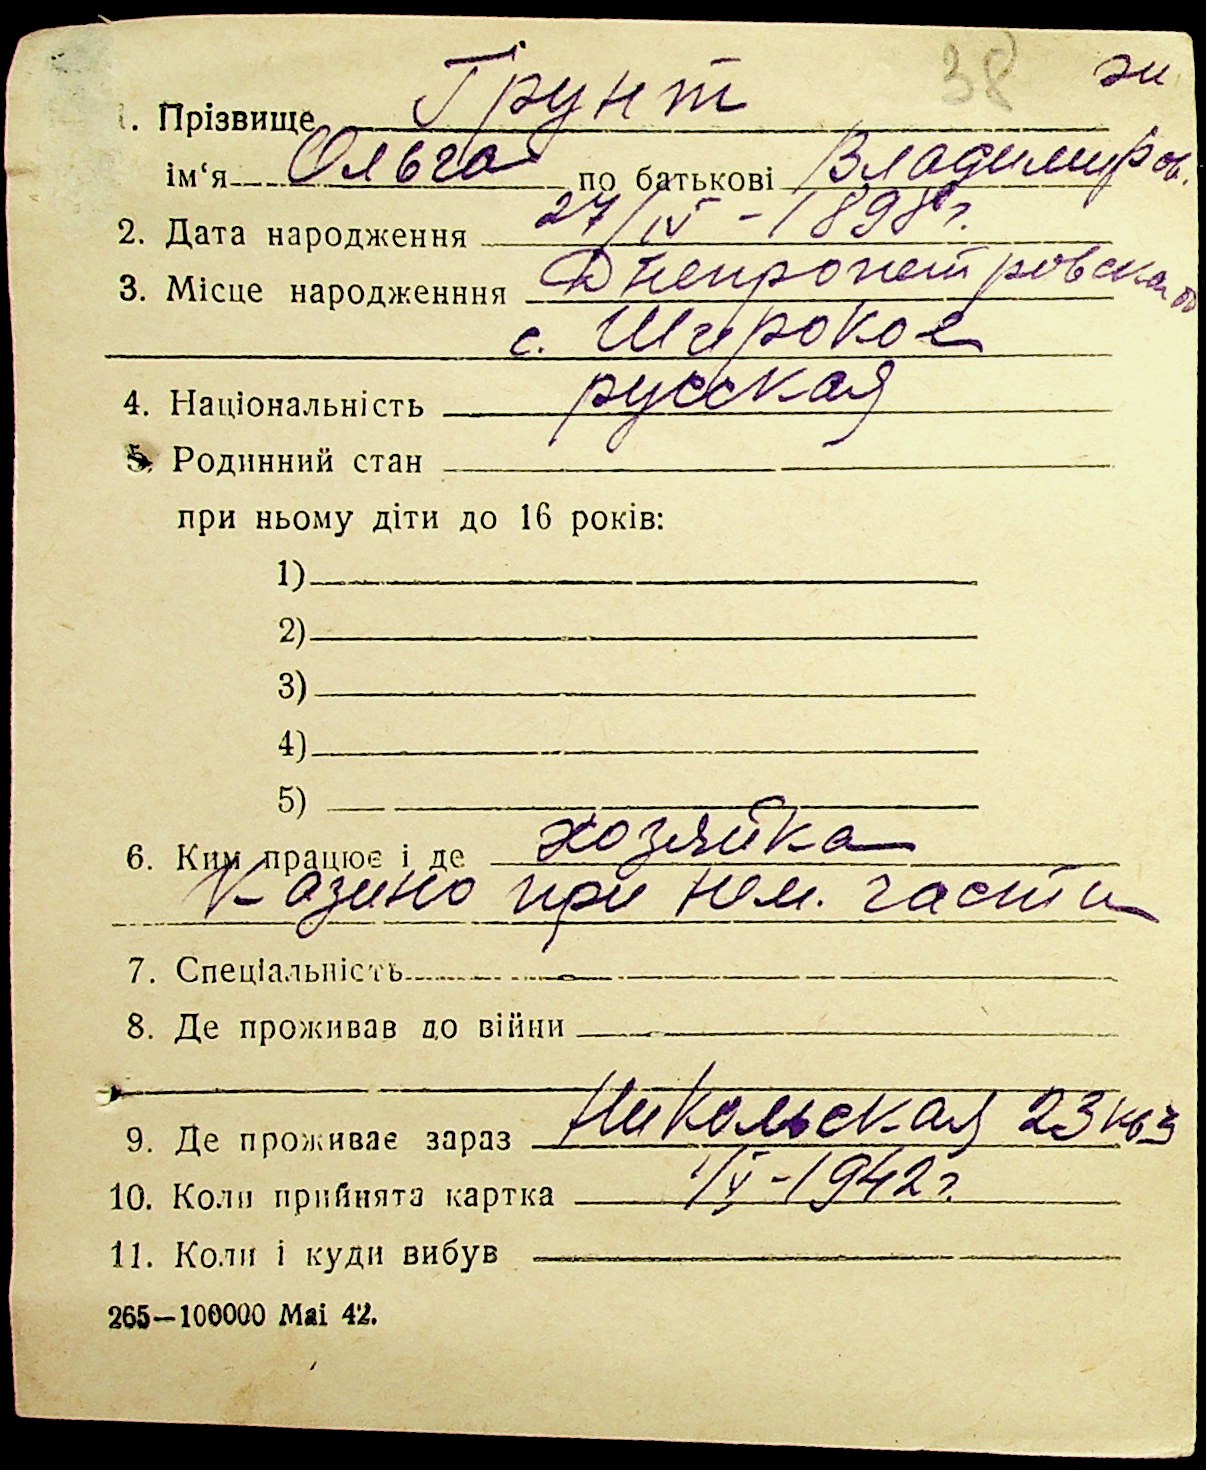 38 эи
1. Прізвище Грунт
ім‘я Ольга по батькові Владимиров.
2. Дата народження 27/IV - 1898 г.
3. Місце народженння Днепропетровская об
с. Широкое
4. Національність русская
5. Родинний стан
при ньому діти до 16 років:
1)
2)
3)
4)
5)
6. Ким працює і де хозяйка
Казино при нем. части
7. Спеціальність
8. Де проживав до війни
9. Де проживає зараз Никольская 23 кв 3
10. Коли прийнята картка 1/V - 1942 г.
11. Коли і куди вибув
265—100000 Mai 42.